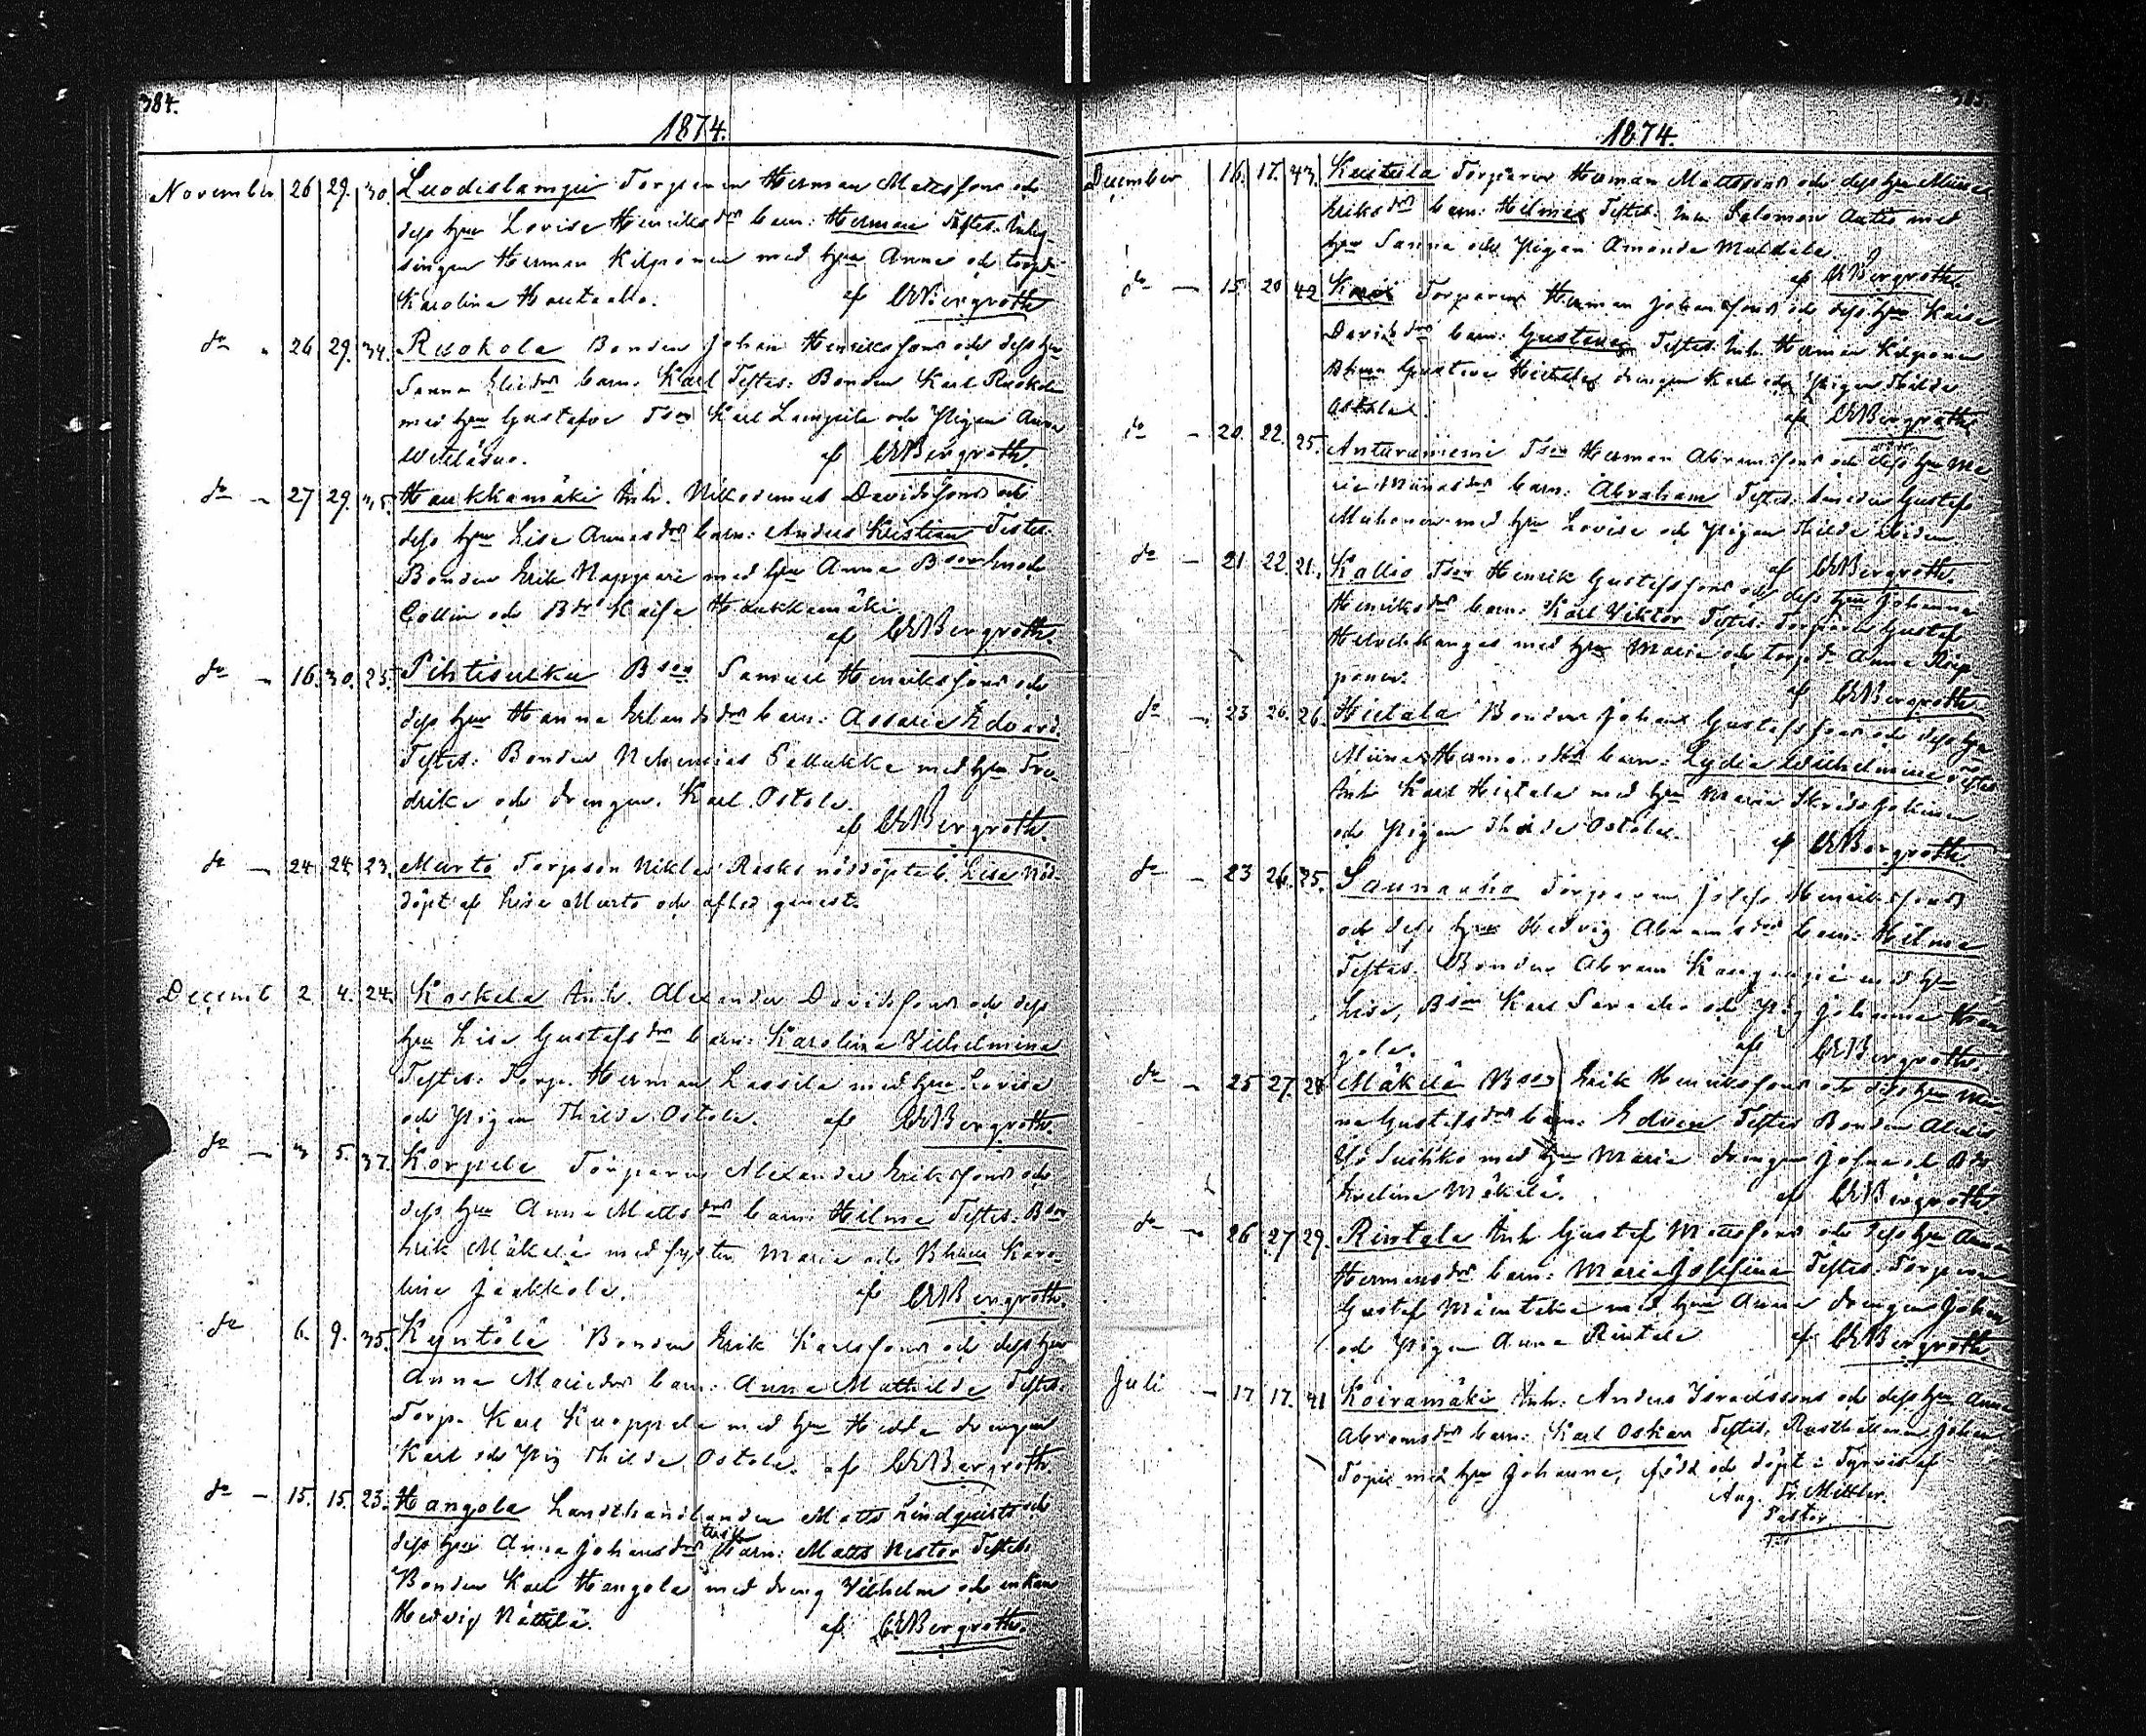 384.
1874.
November 26 29. 30. Luodislampi Torparen Herman Matssons och
dess hru Lovisa Henriksdrs barn: Herman Testes: Inhy-
singen Herman Kilponen med hru Anna och torpdr
Karolina Hautaalho. af CWBergroth
do " 26 29. 34. Ruokola Bonden Johan Henrikssons och dess hru
Sanna Eliedrs barn: Karl Testes: Bonden Karl Ruokola
med hru Gustafva Tson Karl Lampila och Pigan Anna
af CWBergroth.
do - 27 29. 35. Haukkamäki Inh. Nikodemus Davidssons och
dess hru Lisa Annasdrs barn: Anders Kristian Testes:
Bonden Erik Nappari med hru Anna Bson
Collin och Bdr Kaisa Haukkamäki.
af CWBergroth.
do - 16. 30. 25. Pihtisulku Bson Samuel Henrikssons och
dess hru Hanna Erlandsdrs barn: Assarias Edvard
Testes: Bonden Nehemias Pellukka med hru Fre-
drika och drengen Karl Ostola.
af CWBergroth.
do - 24. 24. 23. Murto Torpson Niklas Rasks nöddöpta b. Lisa Nöd-
döpt af Lisa Murto och afled genast.
Decemb 2 4. 24. Koskela Inh. Alexander Davidssons och dess
hru Lisa Gustafsdrs barn: Karolina Vilhelmina
Testes: Torp. Herman Lassila med hru Lovisa
och Pigan Thilda Ostola. af CWBergroth.
do - 3 5. 37. Korpela Torparen Alexander Erikssons och
dess hru Anna Mattsdrs barn: Hilma Testes: Bson
Erik Mäkelä med syster Maria och Bhrun Karo-
lina Jaakkola. af CWBergroth.
do 6. 9. 35. Kyntölä Bonden Erik Karlssons och dess hru
Anna Mariedrs barn: Anna Mathilda Testes:
Torp. Karl Knoppala med hru Hedda drengen
Karl och Pig Thilda Ostola. af CWBergroth.
do - 15. 15. 23. Hangola Landthandlanden Matts Lindquists och
dess hru Anna Johansdrs barn: Matts Nestor Testes:
Bonden Karl Hangola med dreng Vilhelm och enkan
Hedvig Nättilä. af CWBergroth.
385.
1874.
December 16. 17. 43. Kuitula Torparen Herman Mattssons och dess hru Miina
Eriksdrs barn: Hilma Testes: Inh. Salomon Autio med
hru Sanna och Pigan Amanda Mattala
af CWBergroth.
do - 15. 20 42 Torparen Herman Johanssons och dess hru Kaisa
Davidsdrs barn: Gustava Testes: Inh. Herman Kilponen
Bhrun Gustava Hietala drengen Karl och Pigan Thilda
Ostola. af CWBergroth.
do - 20. 22. 25. Anturaniemi Tson Herman Abramssons och dess hru Ma-
ria Miinasdrs barn: Abraham Testes: Smeden Gustaf
Muhonen med hru Lovisa och Pigan Thilda
af CWBergroth.
do - 21 22. 21. Kallio Tson Henrik Gustafssons och dess hru Johanna
Henriksdrs barn: Karl Viktor Testes: Torparen Gustaf
med hru Maria och torpdr Anna Kilp-
ponen. af CWBergroth.
do - 23 26. 26. Hietala Bonden Johan Gustafssons och dess hru
Miina Hermansdrs barn: Lydia Wilhelmina Testes
Inh Karl Hietala med hru Maria
och Pigan Thilda Ostola. af CWBergroth.
do - 23 26. 35. Saunaaho Torparen Josef Henrikssons
och dess hru Hedvig Abramsdrs barn: Hilma
Testes: Bonden Abram med hru
Lisa, Bson Karl och Pig Johanna Han-
gola. af CWBergroth.
do - 25 27. 24 Mäkelä Bson Erik Henrikssons och dess hru Man-
na Gustafsdrs barn: Edvin Testes Bonden
med hru Maria drengen och Bdr
Evelina Mäkelä. af CWBergroth
do - 26 27 29. Rintala Inh Gustaf Mattssons och dess hru Anna
Hermansdrs barn: Maria Josefina Testes: Torparen
Gustaf med hru Anna drengen Johan
och Pigan Anna Rintala af CWBergroth.
Juli - 17 17. 41 Koiramäki Inh. Anders Israelssons och dess hru Anna
Abramsdrs barn: Karl Oskar Testes, Rusthållaren Johan
med hru Johanna, född och döpt i Tyrvis af
Aug. Fr. Mittler.
Pastor.